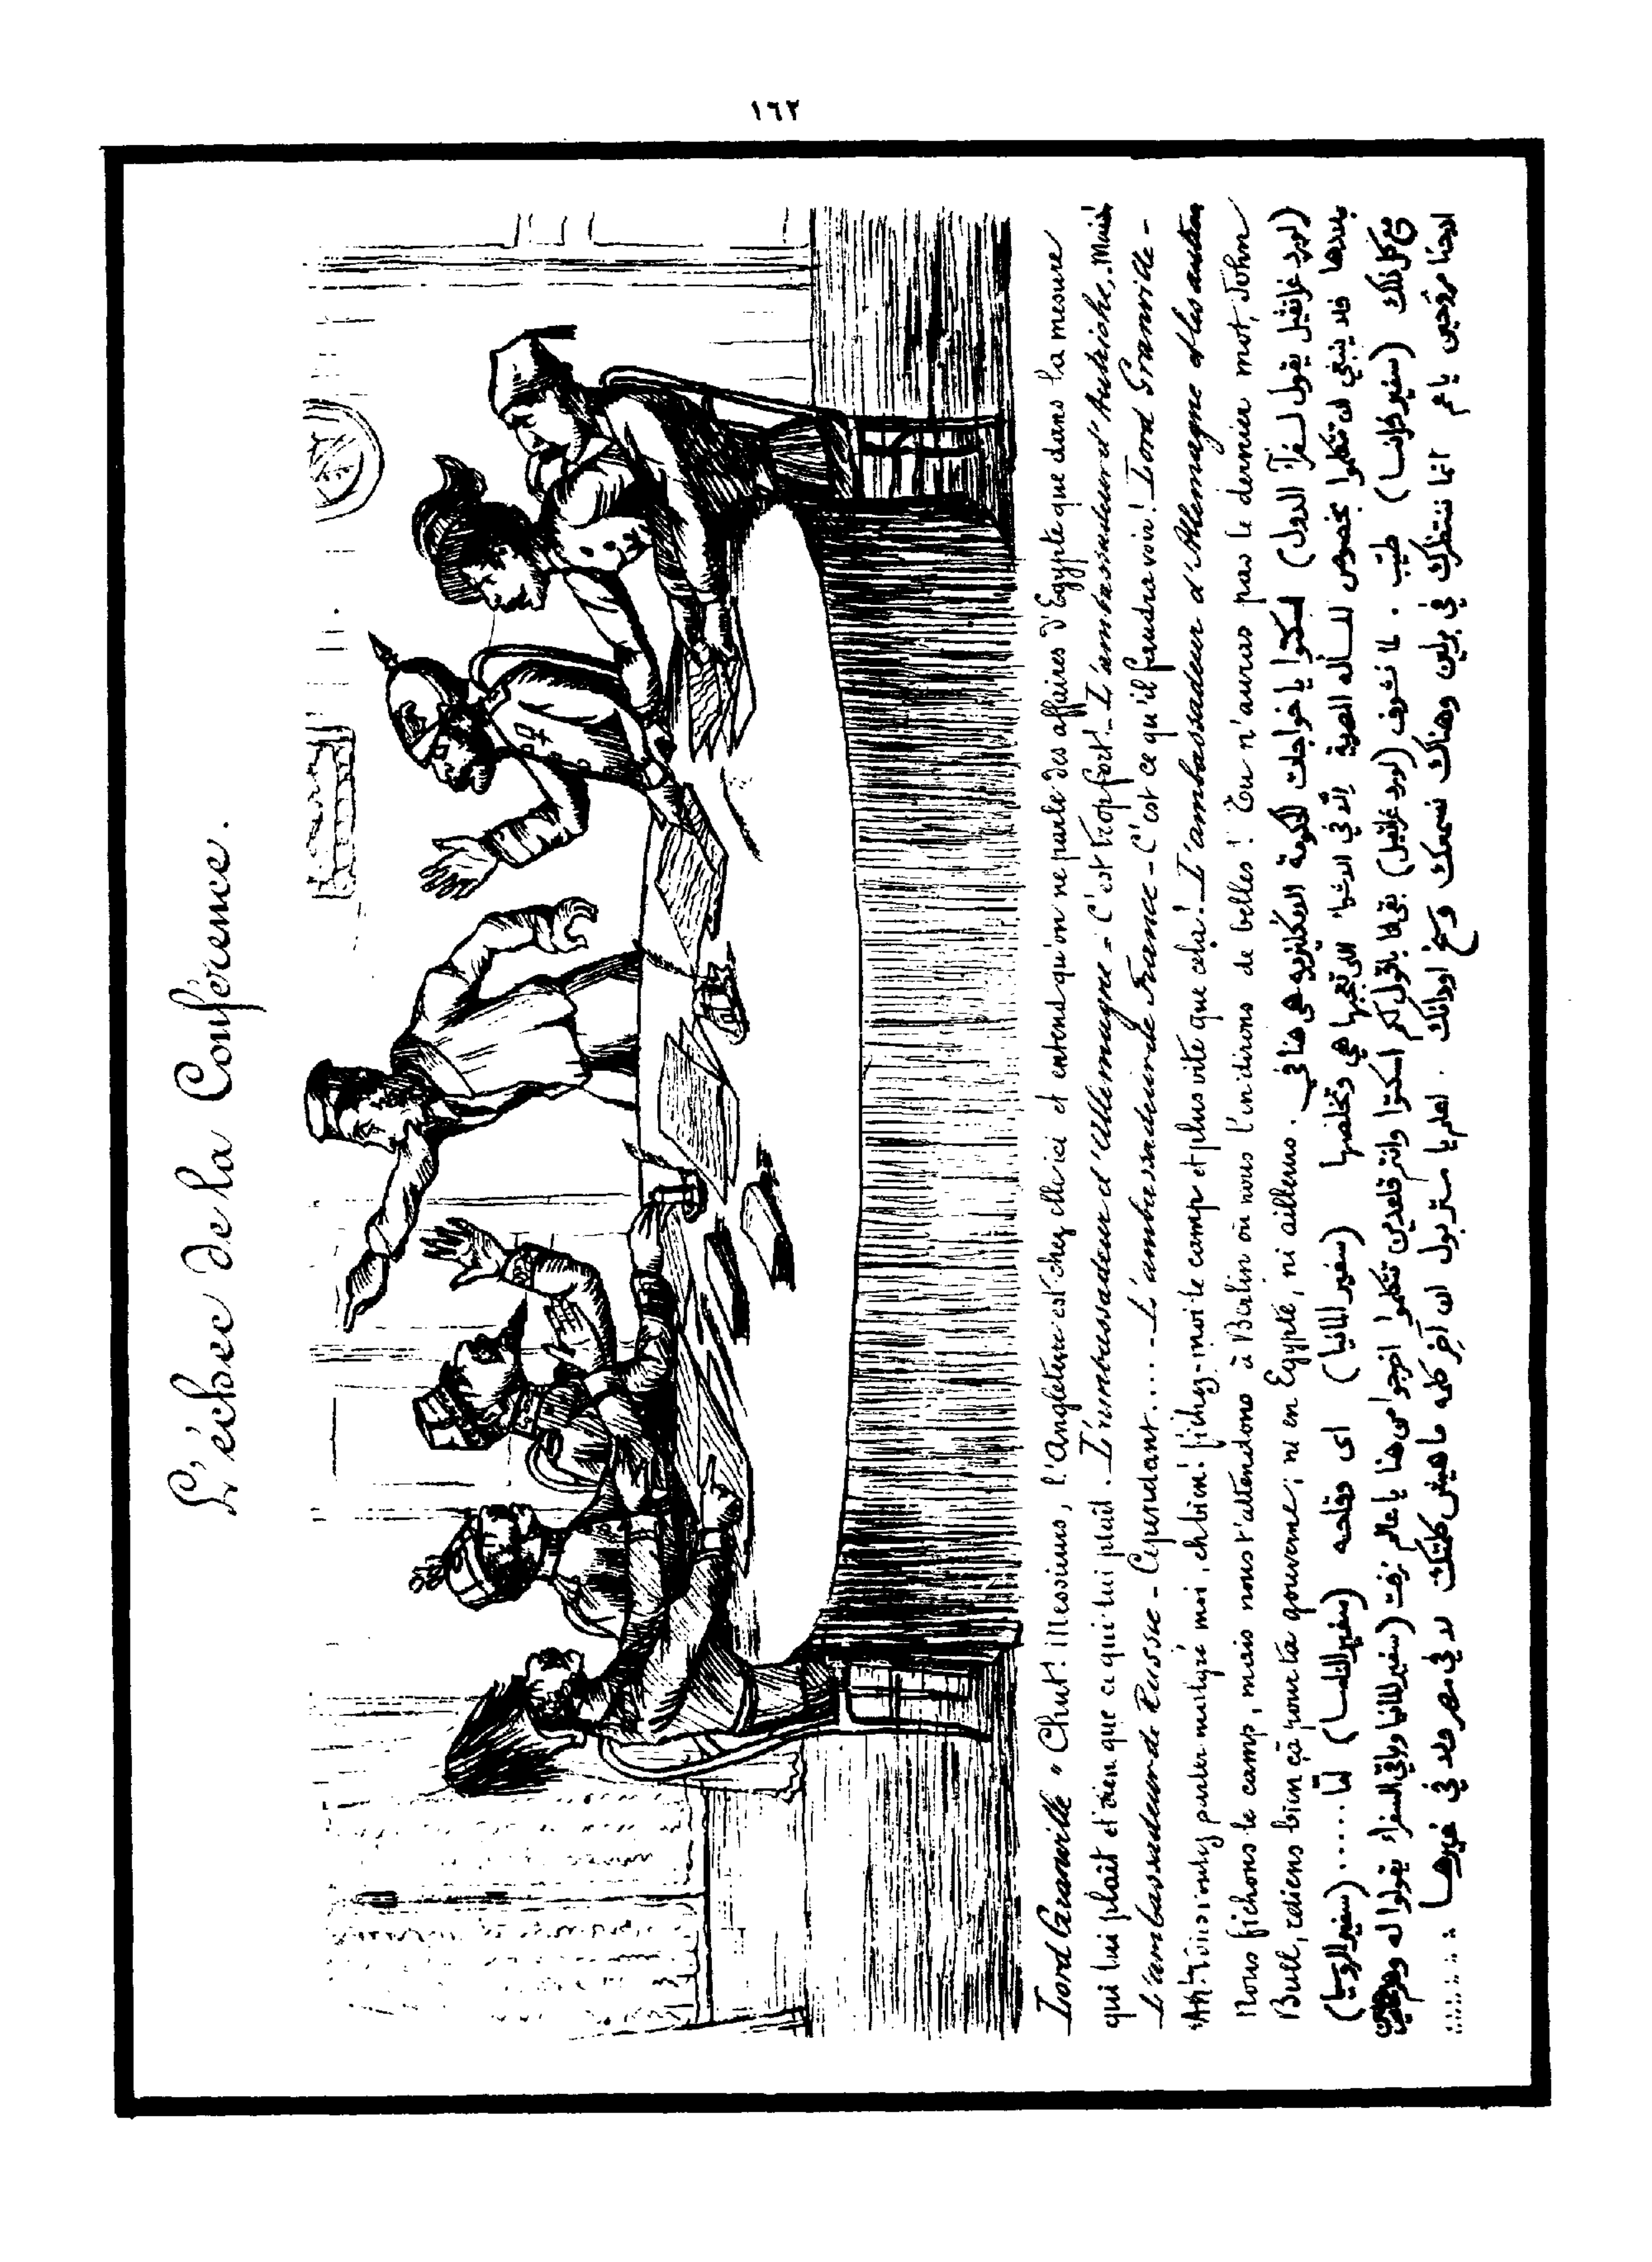 ١٦٢
L'échec de la Conférence.
Lord Granville " Chut! Messieurs, l'Angleterre est chez elle ici et entend qu'on ne parle des affaires d'Egypte que dans la mesure
qui lui plaît et rien que ce qui lui plaît. L'ambassadeur d'Allemagne = C'est trop fort! _ L'ambassadeur d'Autriche, Mais
L'ambassadeur de Russie - Cependant.... - L'ambassadeur de France - C'est ce qu'il faudra voir! Lord Granville -
Ah! Vous voulez parler malgré moi, eh bien! fichez-moi le camp et plus vite que cela! _ L'ambassadeur d'Allemagne et les autres
Nous fichons le camp, mais nous t'attendons à Berlin où nous t'en dirons de belles! Tu n'auras pas le dernier mot, John
Bull, retiens bien ça pour ta gouverne; ni en Egypte, ni ailleurs.
(لورد غرانفيل يقول لسفرآ الدول) اسكتوا يا خواجات الحكومة الانكليزيه هي هنا في
بلدها فلا ينبغي ان تتكلموا بخصوص المسأله المصرية إلّا في الاشيا اللى تعجبها هي وتخلصها (سفير المانيا) اى وقاحه (سفير النمسا) لمّا ..... (سفير الروسيا)
مع كل ذلك (سفير فرانسا) طيب . لما نشوف (لورد غرانفيل) بقى لما باقول لكم اسكتوا وانتم قاعدين تتكلموا اخرجوا من هنا يا عالم زفت (سفير المانيا وباقي السفراء يقولوا له وهم
احنا مروحين يا عم انما ننتظرك في برلين وهناك نسمعك وسخ اودانك . اعلم يا مستر بول ان آخر كلمه ماهيش كلمتك لا في مصر ولا في غيرها